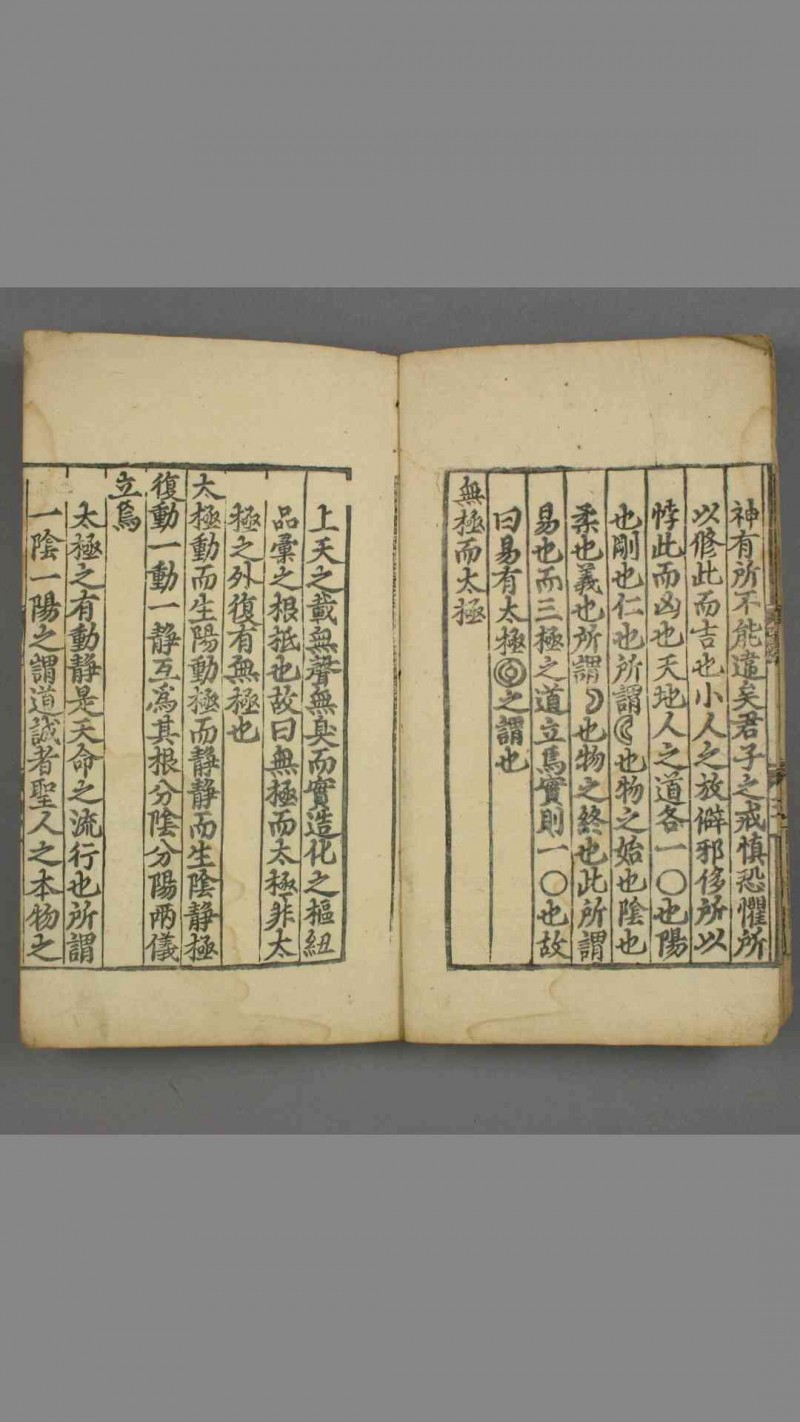 神有所不能違矣君子之戒慎恐懼所
以修此而吉也小人之放僻邪侈所以
悖此而凶也天地人之道各一〇也陽
也剛也仁也所謂☾也物之始也陰也
柔也義也所謂☽也物之終也此所謂
易也而三極之道立焉實則一〇也故
曰易有太極◎之謂也
無極而太極
上天之載無聲無臭而實造化之樞紐
品彙之根抵也故曰無極而太極非太
極之外復有無極也
太極動而生陽動極而靜靜而生陰靜極
復動一動一靜互爲其根分陰分陽兩儀
立焉
太極之有動靜是天命之流行也所謂
一陰一陽之謂道誠者聖人之本物之